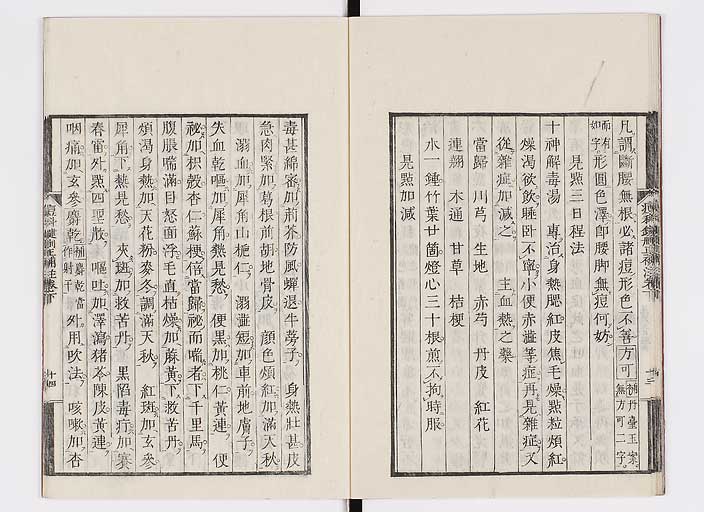 凡謂斷腰無根必諸痘形色不善方可補丹臺玉案無方可二字
而有如字形圓色澤卽腰脚無痘何妨
見㸃三日程法
十神解毒湯　專治身熱腮紅皮焦毛燥㸃粒煩紅
燥渴欲飮睡卧不寧小便赤澁等症丹見雜症又
從雜症加減之　主血熱之藥
當歸　川芎　生地　赤芍　丹皮　紅花
連翹　木通　甘草　桔梗
水一鍾竹葉廿箇燈心三十根煎不拘時服
見㸃加減
十三
毒甚綿密加荊芥防風蟬退牛蒡子　身熱壯甚皮
急肉緊加葛根前胡地骨皮　顏色煩紅加滿天秋
溺血加犀角山梔仁　溺澁短加車前地膚子
失血乾嘔加犀角熱見愁　便黑加桃仁黃連　便
祕加枳殼杏仁蘇梗倍當歸祕而喘者下千里馬
腹脹喘滿目怒面浮毛直枯燥加蔴黃下救苦丹
煩渴身熱加天花粉麥冬調滿天秋　紅斑加玄參
犀角下熱見愁　夾斑加救苦丹　黑陷毒疔加賽
春雷外㸃四聖散　嘔吐加澤瀉猪苓陳皮黃連
咽痛加玄參麝乾補麝乾當作射干外用吹法　咳嗽加杏
十四